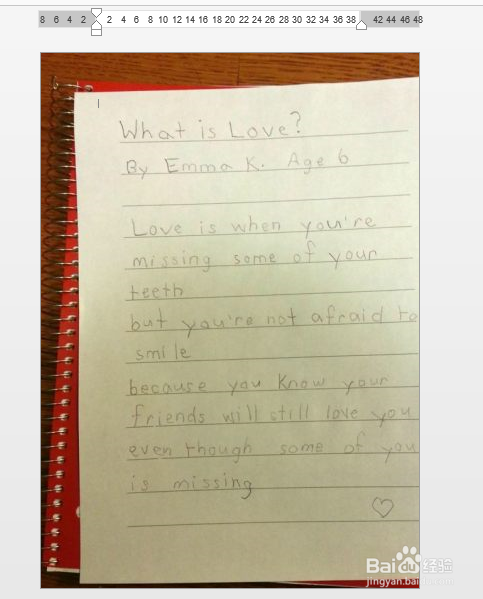 8 6 4 2 2 4 6 8 10 12 14 16 18 20 22 24 26 28 30 32 34 36 38 42 44 46 48
What is Love?
By Emma K. Age 6
Love is when you're
missing some of your
teeth
but you're not afraid to
smile
because you know your
friends will still love you
even though some of you
is missing
Baidu经验
jingyan.baidu.com